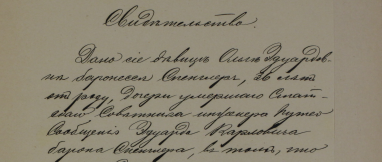 Свидѣтельство.
Дано сіе дѣвицѣ Ольгѣ Эдуардов-
нѣ баронессѣ Спенглеръ, 26 лѣтъ
отъ роду, дочери умершаго Стат-
скаго Совѣтника инженера Путей
Сообщенія Эдуарда Карловича
барона Спенглера, въ томъ, что